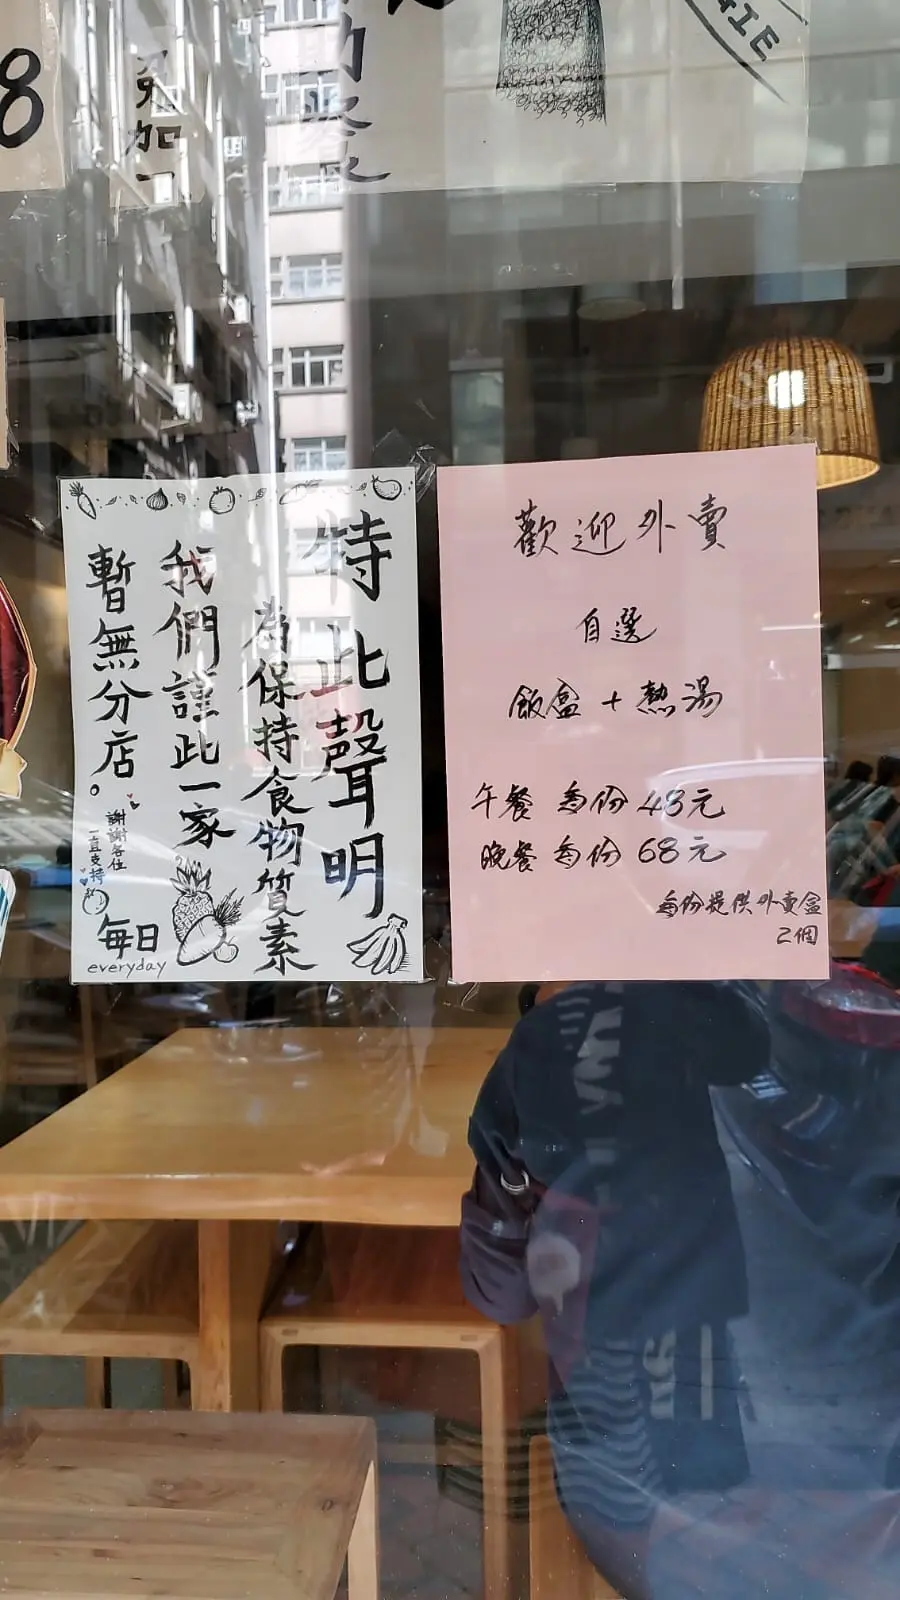 8
免加一
特此聲明
為保持食物質素
我們謹此一家
暫無分店。
謝謝各位
一直支持
每日
everyday
歡迎外賣
自選
飯盒 + 熱湯
午餐 每份 48元
晚餐 每份 68元
每份提供外卖盒
2個